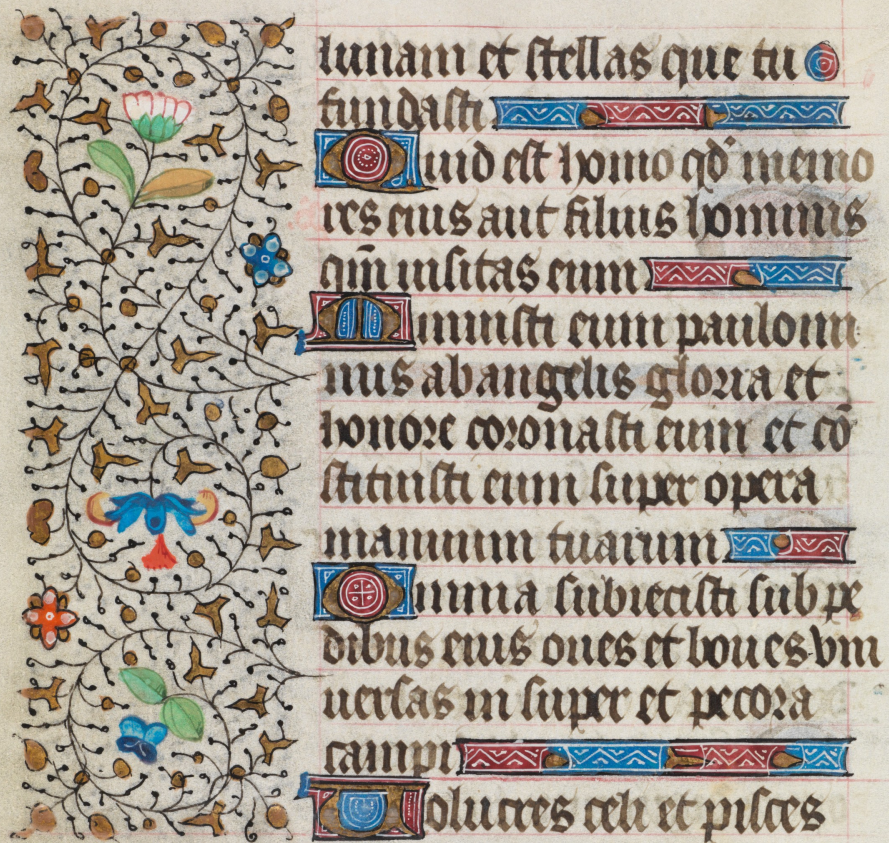 lunam et stellas que tu
fundasti
Quid est homo qd' memo
res eius aut filius hominis
qm̄ uisitas eum
Minuisti eum paulomi
nus ab angelis gloria et
honore coronasti eum et cō
stituisti eum super opera
manuum tuarum
Omnia subiecisti sub pe
dibus eius oues et boues vni
uersas in super et pecora
campi
Volucres celi et pisces